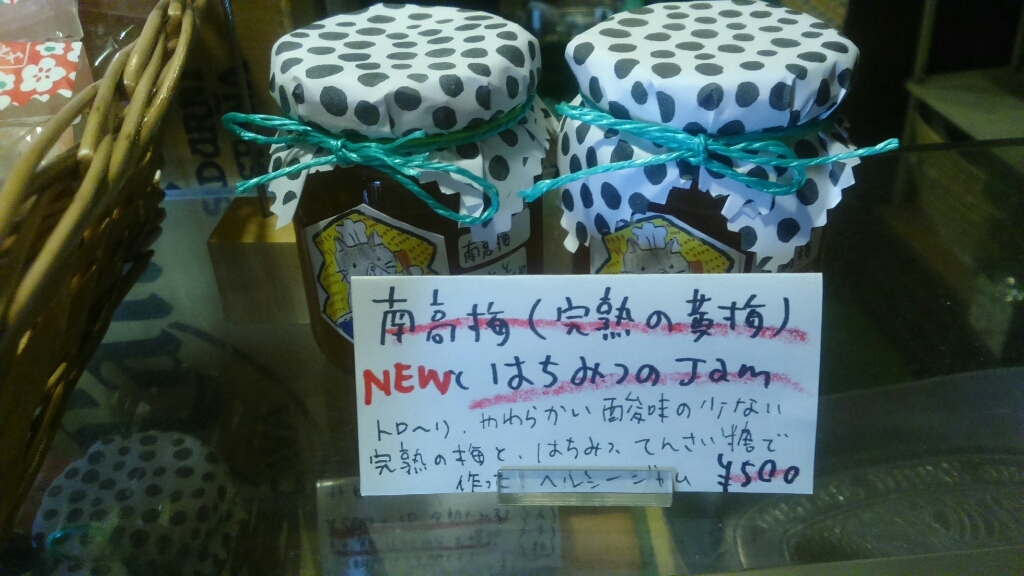 南高梅
南高梅(完熟の黄梅)
NEW と はちみつの Jam
トロ〜リ、やわらかい 酸味の少ない
完熟の梅と、はちみつ てんさい糖で
作った ヘルシージャム ¥500